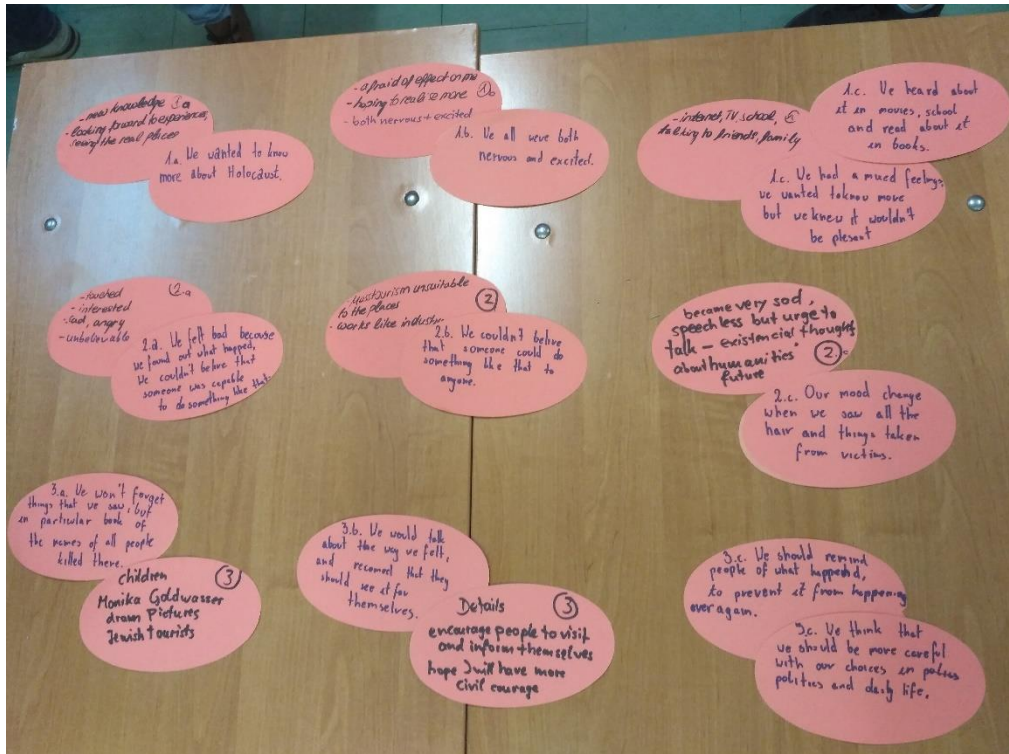 - new knowledge 1a
- looking forward to experiences,
seeing the real places
1a. We wanted to know
more about Holocaust.
- afraid of effect on me
- having to realize more 1b
- both nervous + excited
1.b. We all were both
nervous and excited.
- internet, TV, school,
talking to friends, family
1.c. We heard about
it in movies, school
and read about it
in books.
1.c. We had a mixed feelings,
we wanted to know more
but we knew it wouldn't
be plesent
- touched 2.a
- interested
- sad, angry
- unbelievable
2.a. We felt bad because
we found out what happed,
we couldn't belive that
someone was capable
to do something like that.
- Masstourism unsuitable
to the places 2
- works like industry
2.b. We couldn't belive
that someone could do
something like that to
anyone.
became very sad,
speechless but urge to
talk – existencial thoughts
about humanities'
future 2.c
2.c. Our mood change
when we saw all the
hair and things taken
from victims.
3.a. We won't forget
things that we saw, but
in particular book of
the names of all people
killed there.
Children 3
Monika Goldwasser
drawn Pictures
Jewish tourists
3.b. We would talk
about the way we felt,
and recomend that they
should see it for
themselves.
Details 3
encourage people to visit
and inform themselves
hope I will have more
civil courage
3.c. We should remind
people of what happend,
to prevent it from happening
over again.
3.c. We think that
we should be more careful
with our choices in
politics and daily life.